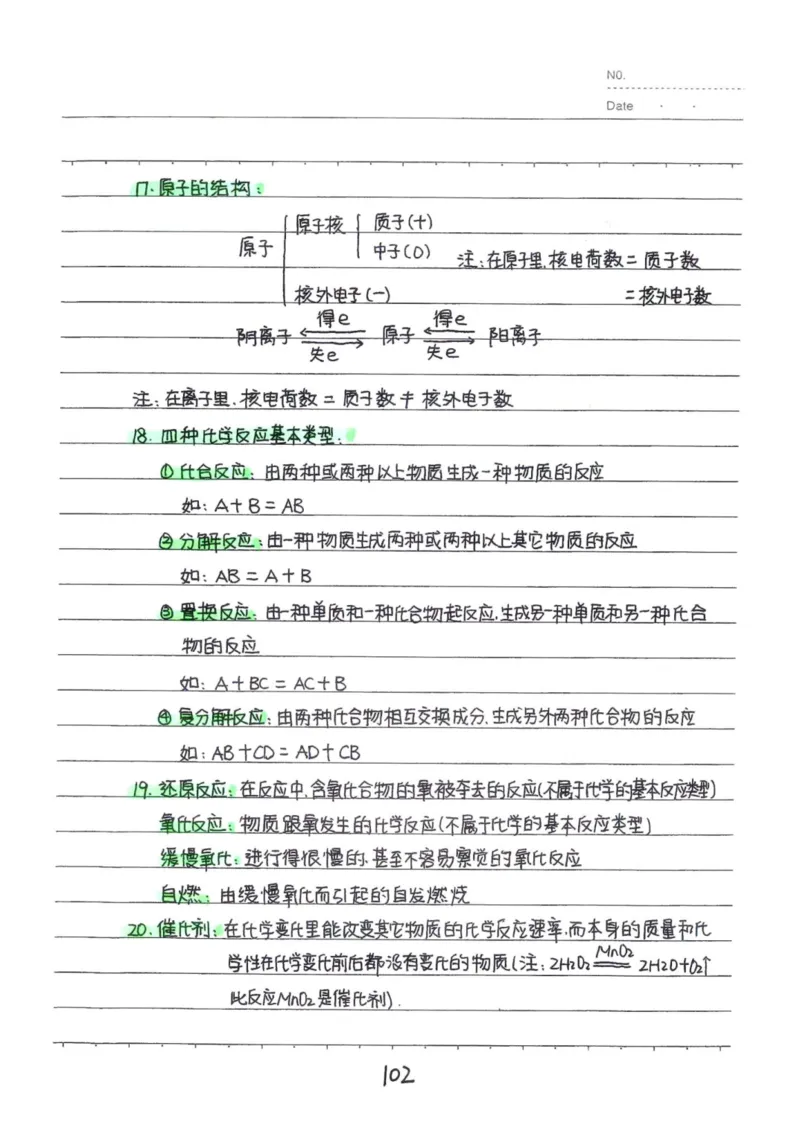 NO.
Date . .
17. 原子的结构:
原子核 质子(+)
原子 中子(0) 注:在原子里,核电荷数=质子数
核外电子(-) =核外电子数
得e 得e
阴离子 ⇌ 原子 ⇌ 阳离子
失e 失e
注:在离子里,核电荷数=质子数≠核外电子数
18. 四种化学反应基本类型:
①化合反应:由两种或两种以上物质生成一种物质的反应
如:A+B=AB
②分解反应:由一种物质生成两种或两种以上其它物质的反应
如:AB=A+B
③置换反应:由一种单质和一种化合物起反应,生成另一种单质和另一种化合
物的反应
如:A+BC=AC+B
④复分解反应:由两种化合物相互交换成分,生成另外两种化合物的反应
如:AB+CD=AD+CB
19. 还原反应:在反应中,含氧化合物的氧被夺去的反应(不属于化学的基本反应类型)
氧化反应:物质跟氧发生的化学反应(不属于化学的基本反应类型)
缓慢氧化:进行得很慢的,甚至不容易察觉的氧化反应
自燃:由缓慢氧化而引起的自发燃烧
20. 催化剂:在化学变化里能改变其它物质的化学反应速率,而本身的质量和化
学性在化学变化前后都没有变化的物质(注:2H2O2 MnO2═ 2H2O+O2↑
此反应MnO2是催化剂).
102